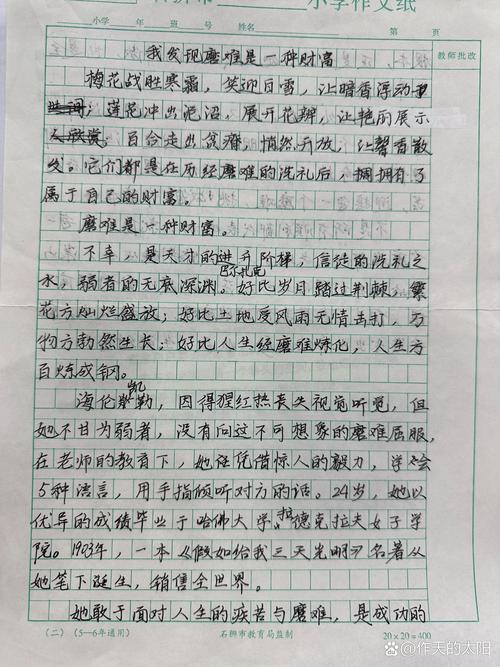 石狮市 小学作文纸
小学 年 班 号 姓名 第 页
教师批改
我发现磨难是一种财富
梅花战胜寒霜，笑迎白雪，让暗香浮动于
世间；莲花冲出泥沼，展开花瓣，让艳丽展示
人欣赏；百合走出贫瘠，悄然开放，让馨香散
发。它们都是在历经磨难的洗礼后，拥拥有了
属于自己的财富。
磨难是一种财富。
不幸，是天才的进升阶梯，信徒的洗礼之
水，弱者的无底深渊。巴尔扎克好比岁月踏过荆棘，繁
花方灿烂盛放；好比土地受风雨无情击打，万
物方勃然生长；好比人生经磨难炼化，人生方
百炼成钢。
海伦凯勒，因得猩红热丧失视觉听觉，但
她不甘为弱者，没有向过不可想象的磨难屈服，
在老师的教育下，她还凭借惊人的毅力，学会
5种语言，用手指倾听对方的话。24岁，她以
优异的成绩毕业于哈佛大学拉德克拉夫女子学
院。1903年，一本《假如给我三天光明》名著从
她笔下诞生，销售全世界。
她敢于面对人生的疾苦与磨难，是成功的
（二）（5—6年通用） 石狮市教育局监制 20×20=400
@作天的太阳